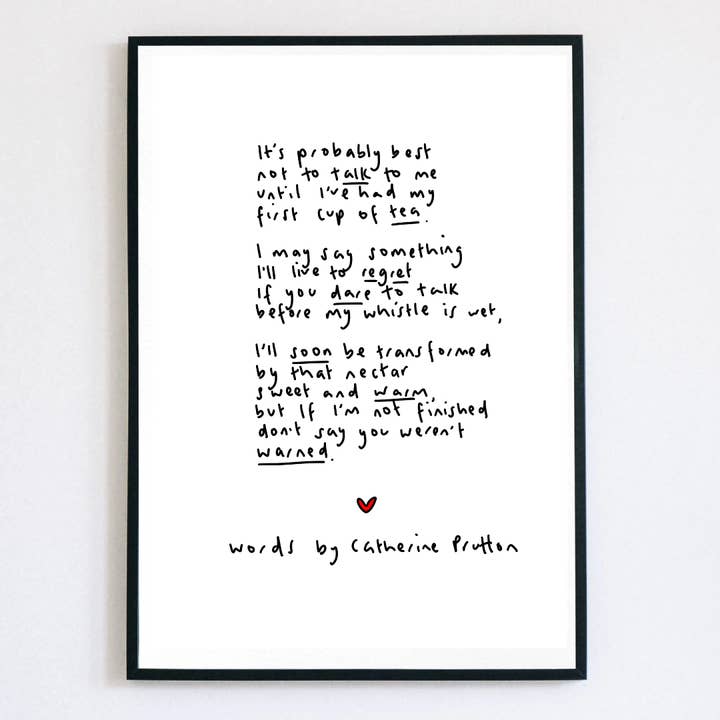 It's probably best
not to talk to me
until I've had my
first cup of tea.
I may say something
I'll live to regret
If you dare to talk
before my whistle is wet,
I'll soon be transformed
by that nectar
sweet and warm,
but If I'm not finished
don't say you weren't
warned.
words by Catherine Prutton